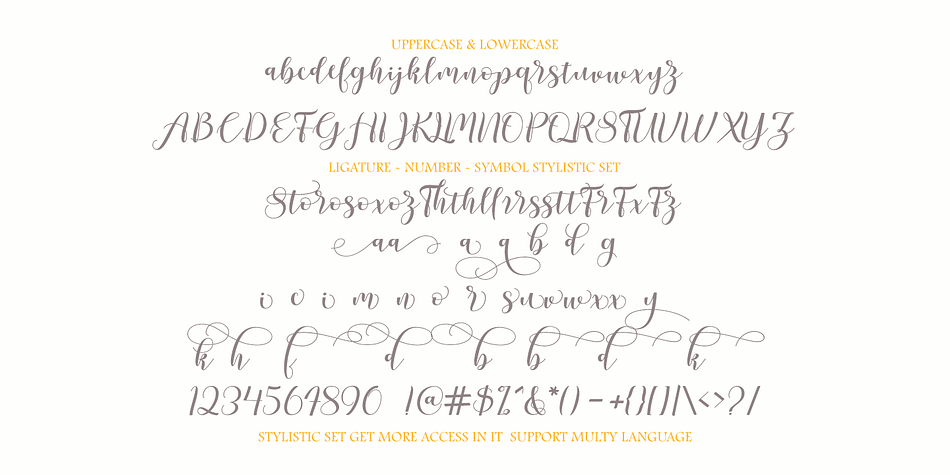 UPPERCASE & LOWERCASE
abcdefghijklmnopqrstuvwxyz
ABCDEFGHIJKLMNOPQRSTUVWXYZ
LIGATURE - NUMBER - SYMBOL STYLISTIC SET
StorosoxozThthllrrssttFrFxFz
aa a q b d g
i c i m n o r suvwxx y
k h f d b b d k
1234567890 !@#$%^&*()-+{}[]|\<>?/
STYLISTIC SET GET MORE ACCESS IN IT SUPPORT MULTY LANGUAGE